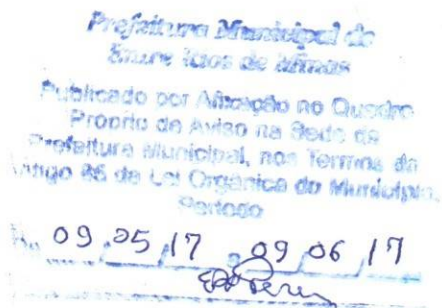 Prefeitura Municipal de
Entre Rios de Minas
Publicado por Afixação no Quadro
Proprio de Aviso na Sede da
Prefeitura Municipal, nos Termos do
Artigo 86 da Lei Orgânica do Município,
Período
09 05 17 a 09 06 17